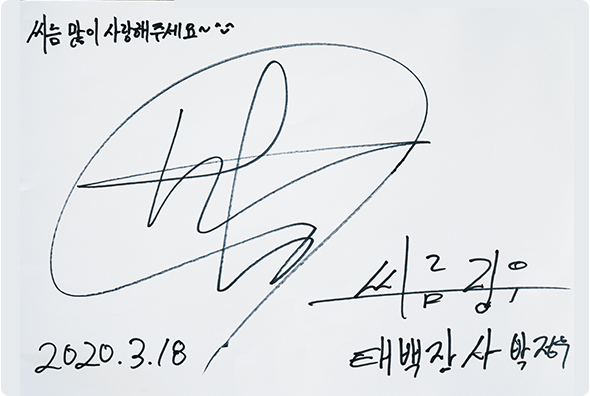 씨름 많이 사랑해주세요~^^
씨름 정우
2020.3.18
태백장사 박정우